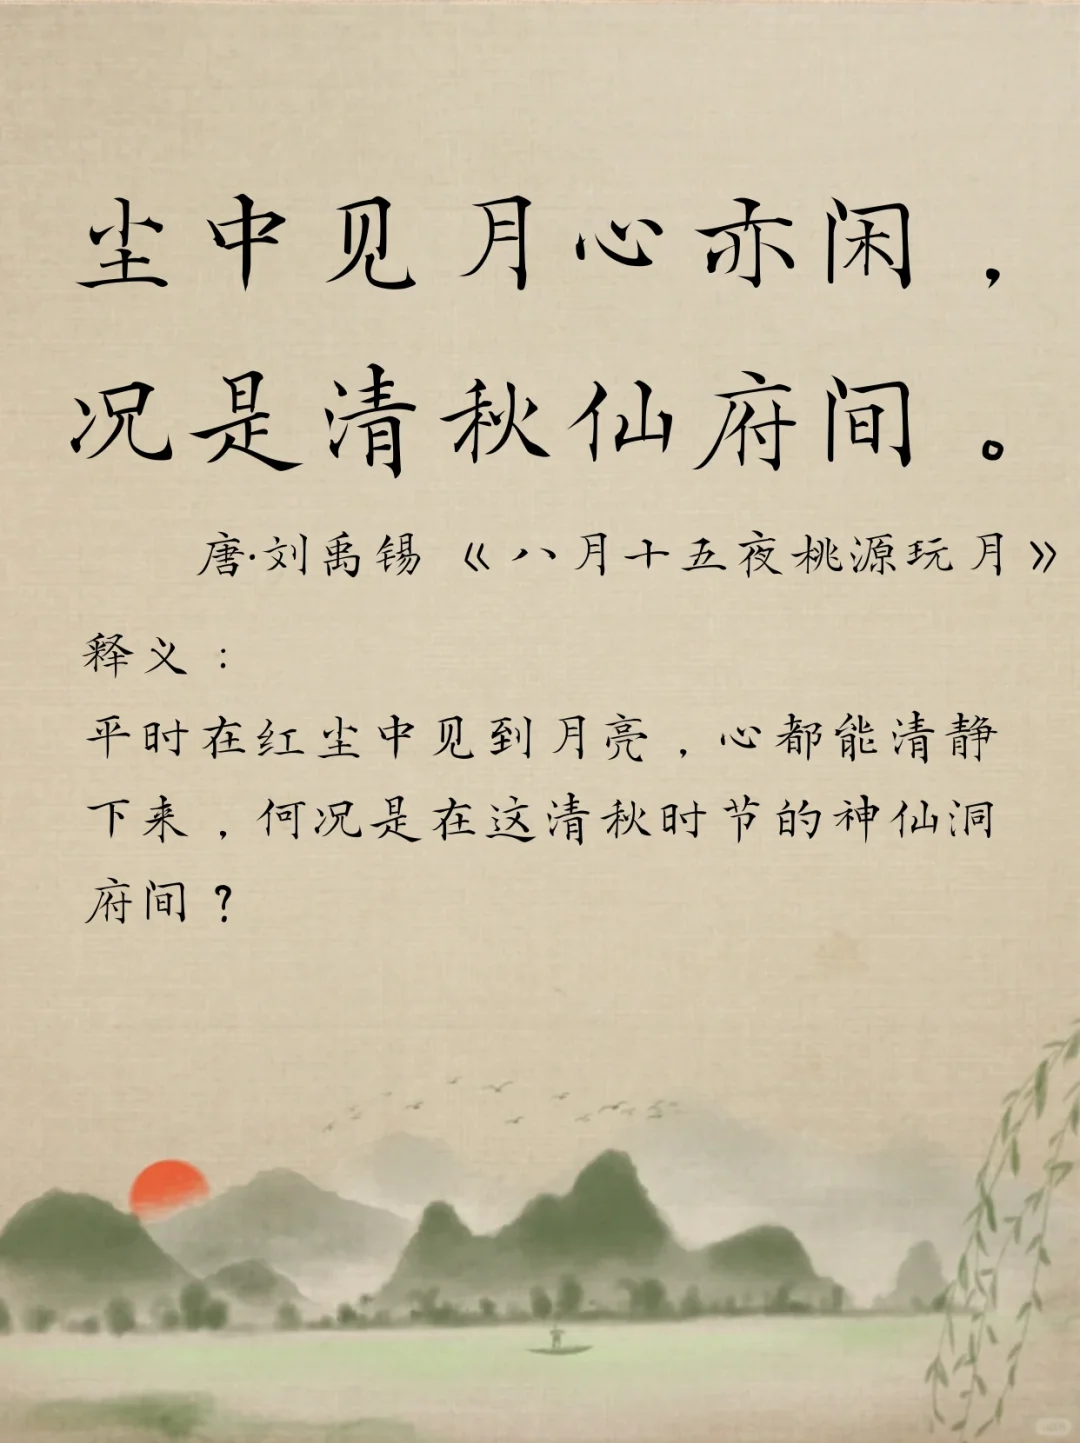 尘中见月心亦闲，
况是清秋仙府间。
唐·刘禹锡《八月十五夜桃源玩月》
释义：
平时在红尘中见到月亮，心都能清静
下来，何况是在这清秋时节的神仙洞
府间？